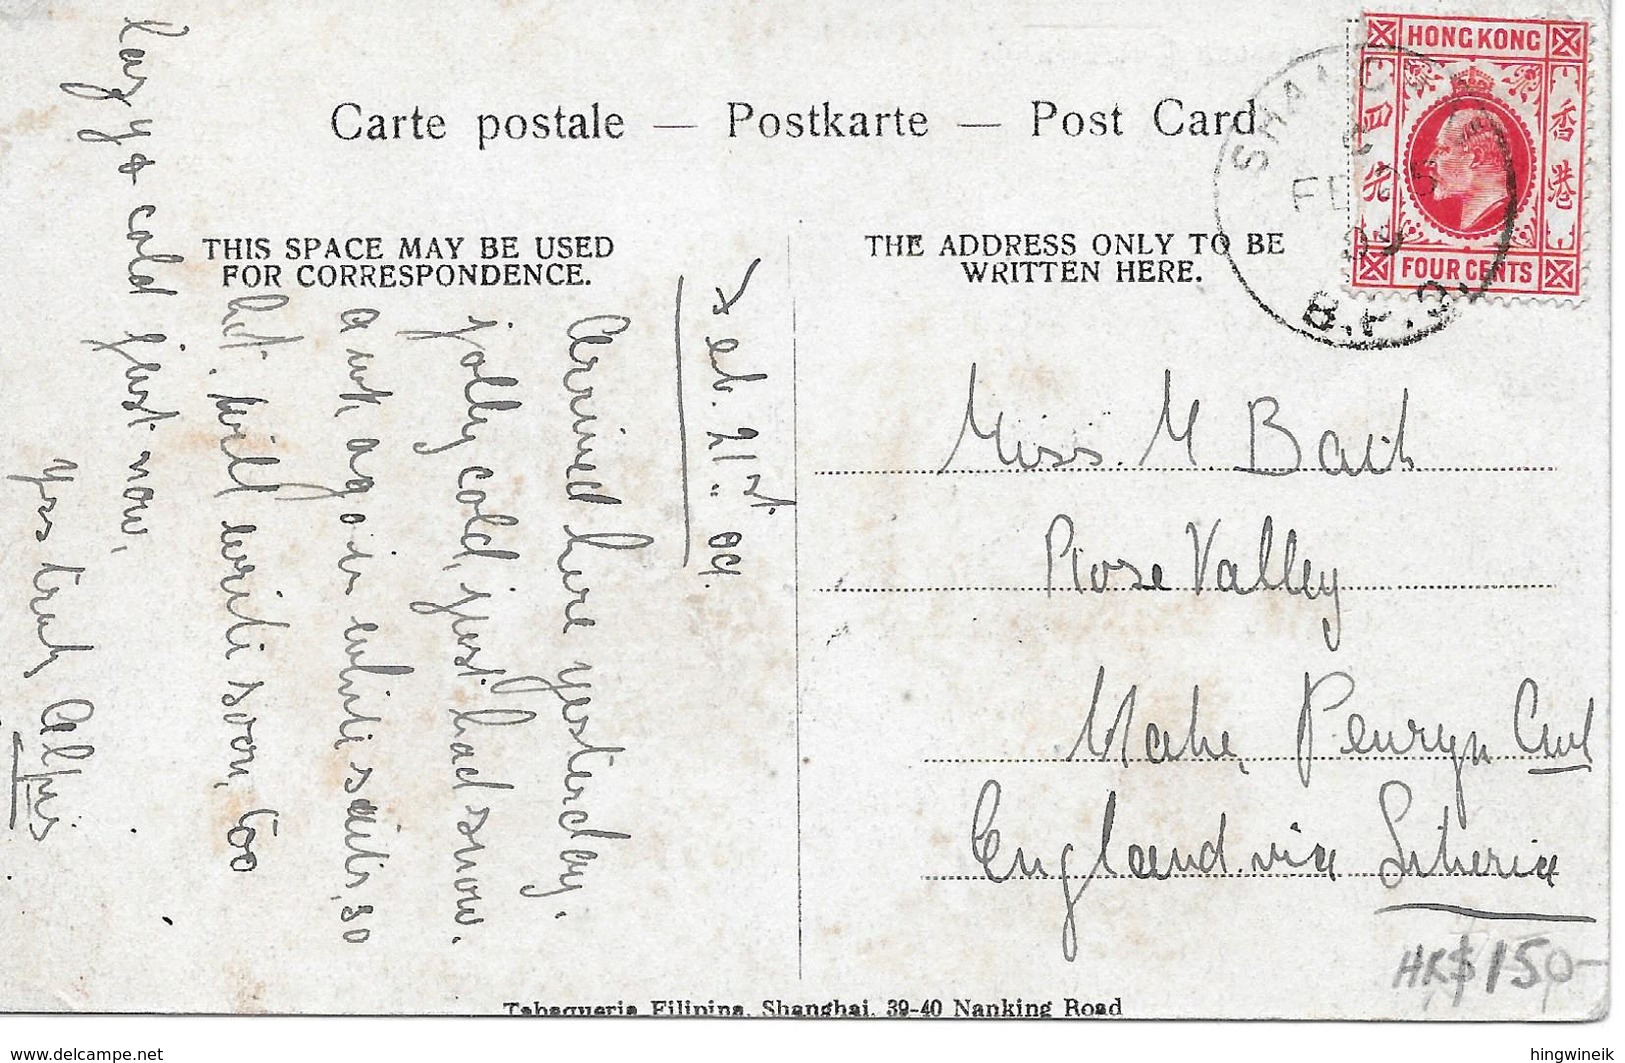 Carte postale — Postkarte — Post Card
HONG KONG
香港
FOUR CENTS
SHANG
C
FE 25
09
B.P.O.
THIS SPACE MAY BE USED
FOR CORRESPONDENCE.
THE ADDRESS ONLY TO BE
WRITTEN HERE.
Feb. 21st. 09.
Arrived here yesterday.
jolly cold, just had snow.
am again in white suits, so
hot. Will write soon, too
lazy & cold just now.
Yrs truly
Miss. M.
Rose Valley
Mabe, Penryn Cwl
England via Siberia
HK$150-
Tabaqueria Filipina, Shanghai, 39-40 Nanking Road
www.delcampe.net
hingwineik